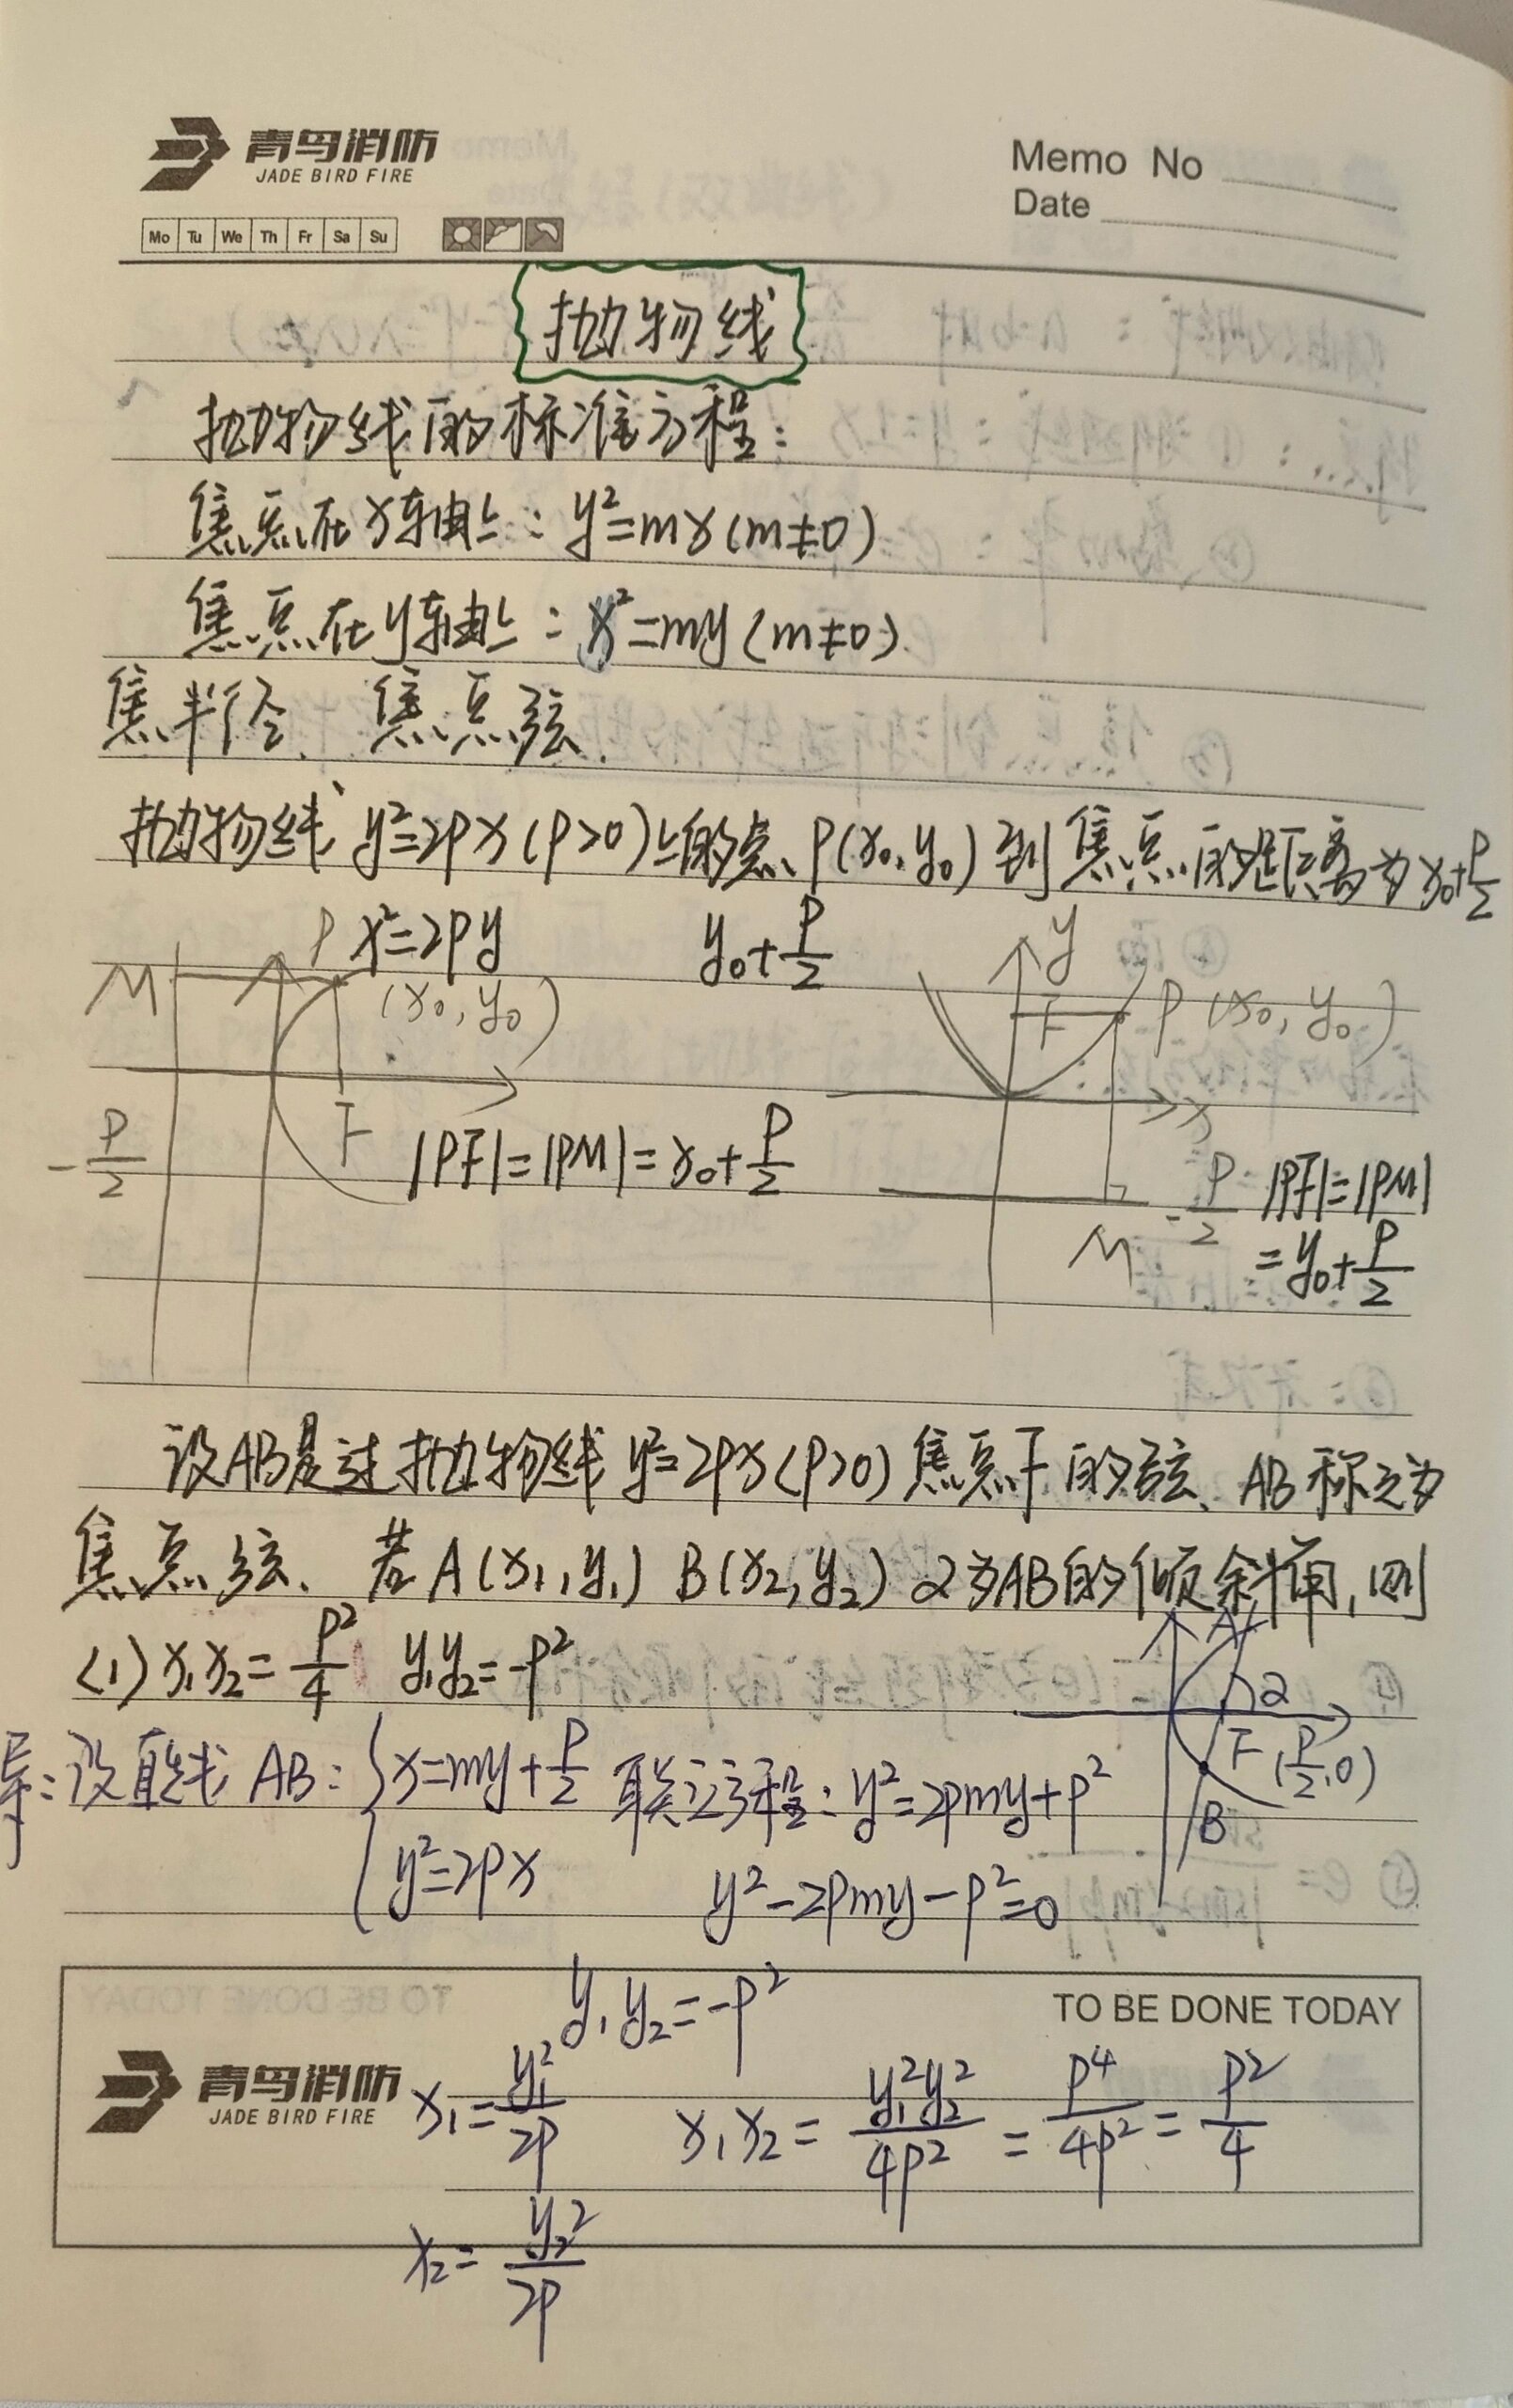 青鸟消防
JADE BIRD FIRE
Memo No
Date
Mo Tu We Th Fr Sa Su
抛物线
抛物线的标准方程:
焦点在x轴上: y²=mx(m≠0)
焦点在y轴上: x²=my(m≠0)
焦半径、焦点弦.
抛物线 y²=2px(p>0)上的点、P(x₀,y₀)到焦点的距离为x₀+p/2
x²=2py y₀+p/2
M P (x₀,y₀) F -p/2
|PF|=|PM|=x₀+p/2
y F P(x₀,y₀) x M -p/2
|PF|=|PM|
=y₀+p/2
设AB是过抛物线 y²=2px(p>0)焦点F的弦、AB称之为
焦点弦、若A(x₁,y₁) B(x₂,y₂) α为AB的倾斜角,则
(1) x₁x₂=p²/4 y₁y₂=-p²
A α F(p/2,0) B
导:设直线AB: {x=my+p/2 联立方程: y²=2pmy+p²
y²=2px y²-2pmy-p²=0
y₁y₂=-p²
TO BE DONE TODAY
青鸟消防
JADE BIRD FIRE
x₁=y₁²/2p x₁x₂=y₁²y₂²/4p²=p⁴/4p²=p²/4
x₂=y₂²/2p